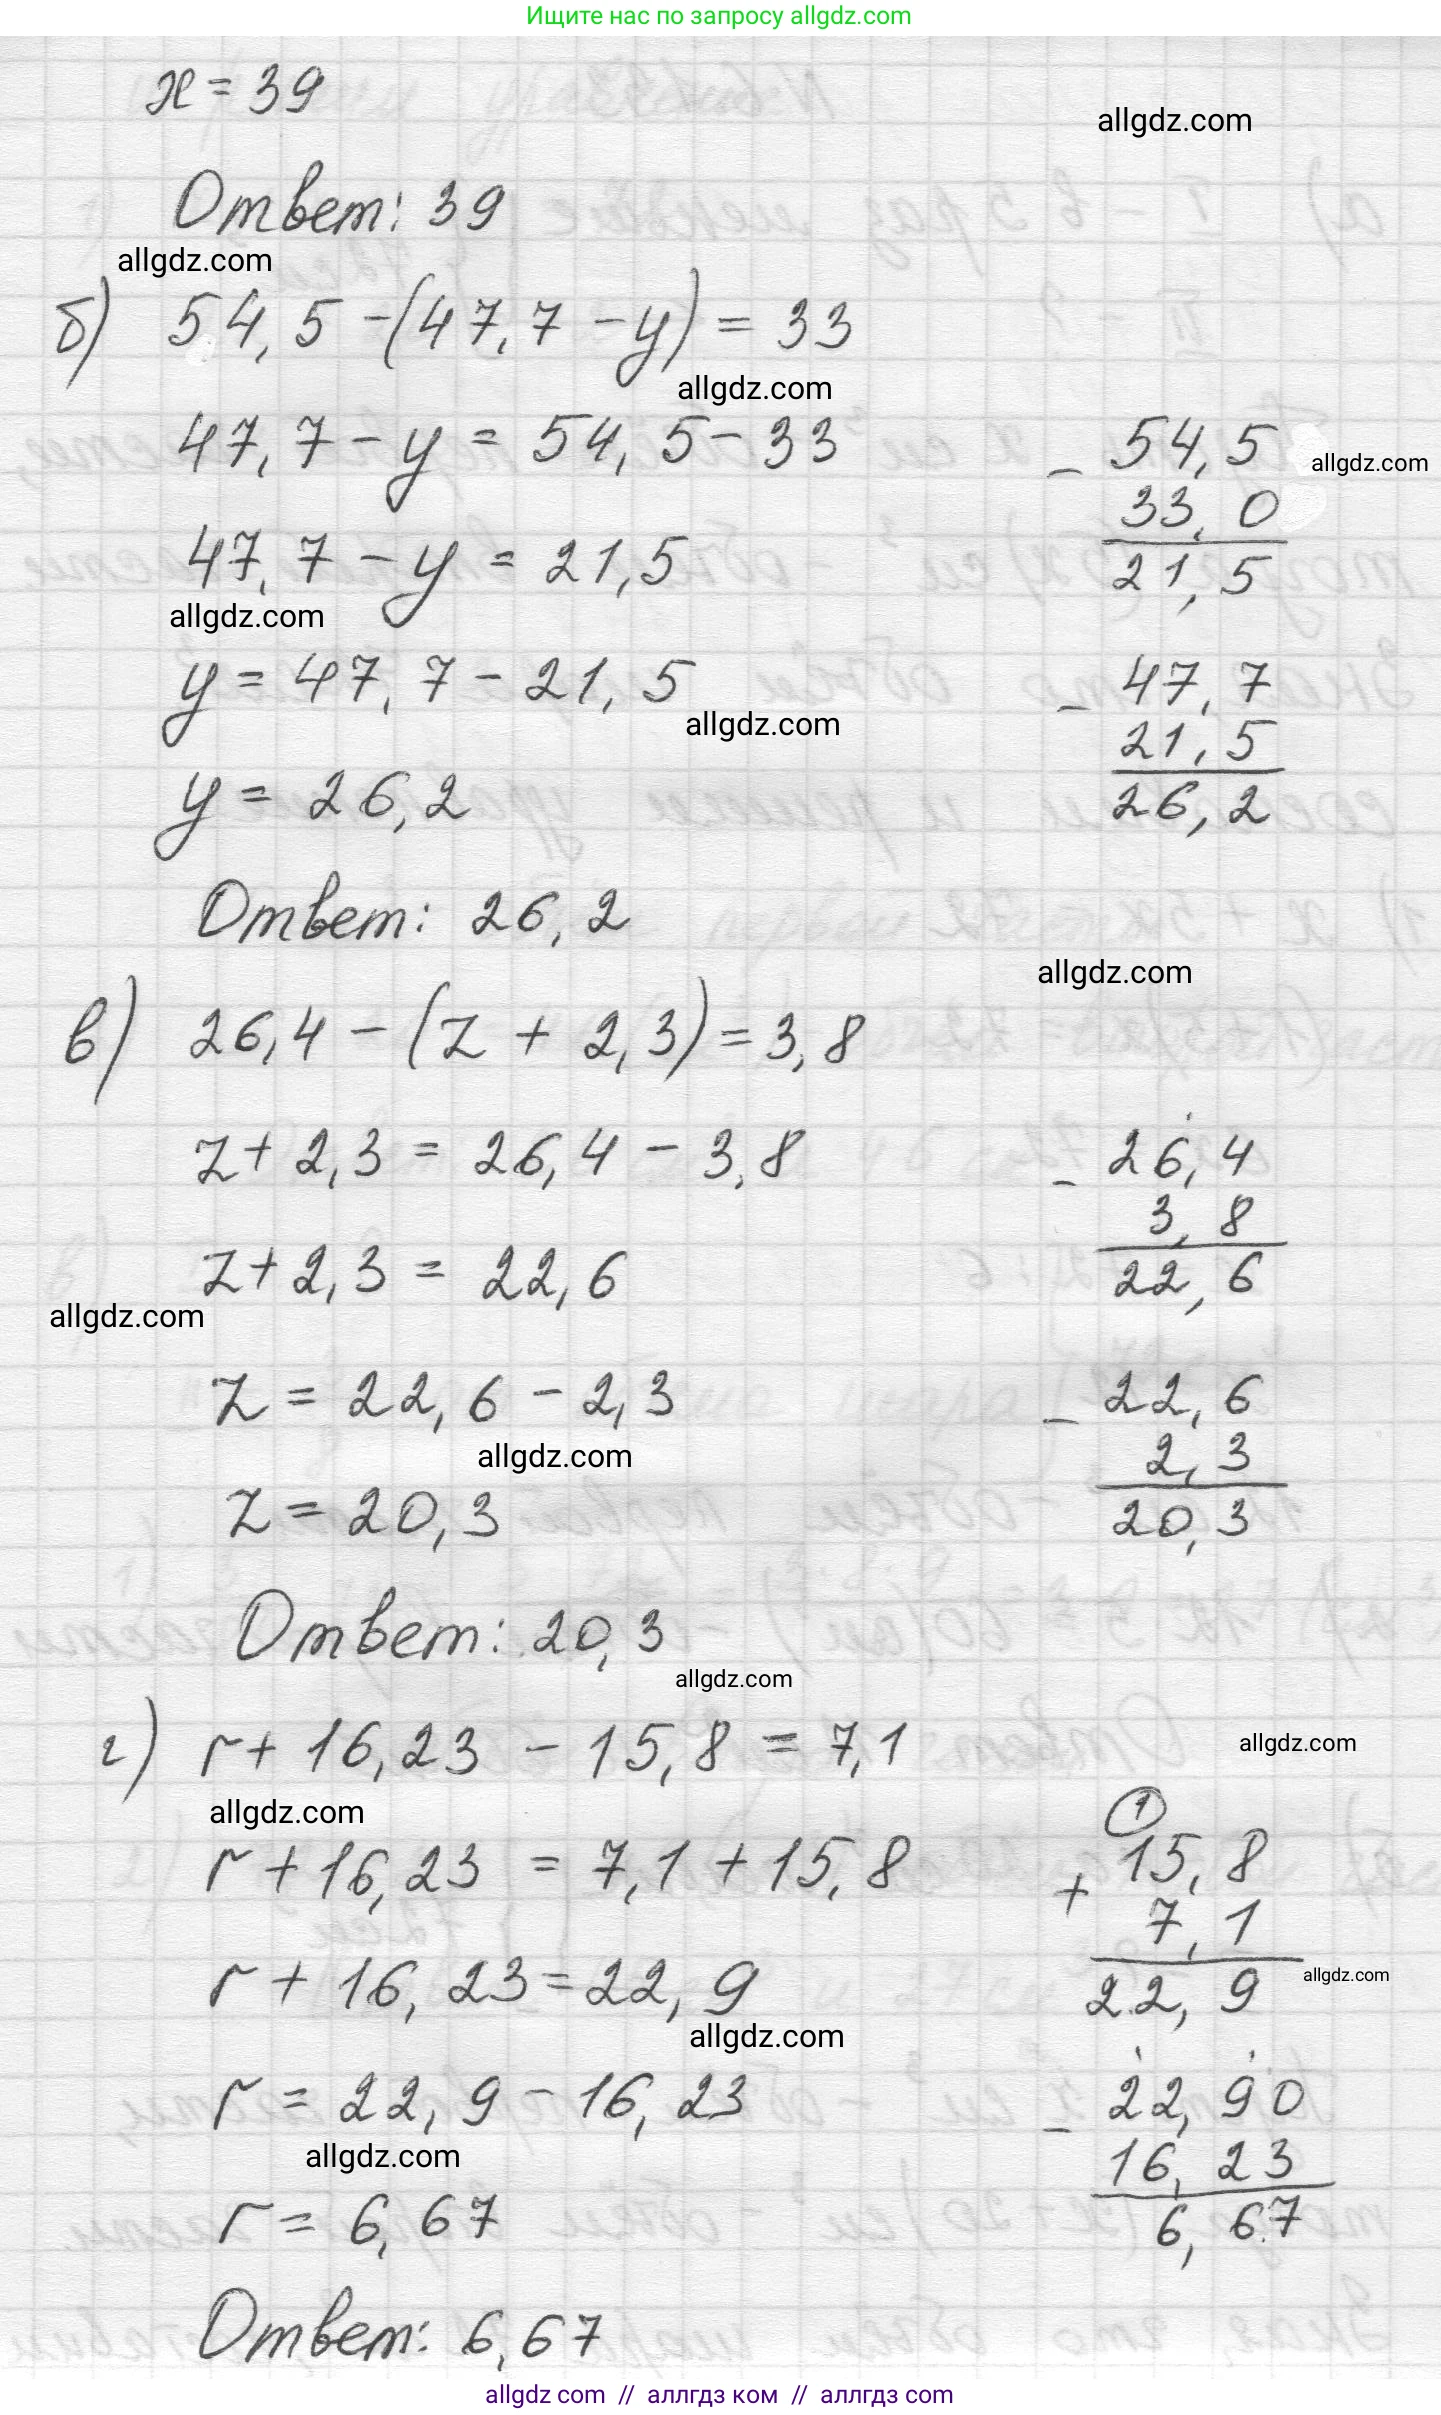 Ищите нас по запросу allgdz.com
x = 39
allgdz.com
Ответ: 39
allgdz.com
б) 54,5 - (47,7 - y) = 33
allgdz.com
47,7 - y = 54,5 - 33
- 54,5
allgdz.com
33,0
21,5
47,7 - y = 21,5
allgdz.com
y = 47,7 - 21,5
allgdz.com
- 47,7
21,5
26,2
y = 26,2
Ответ: 26,2
allgdz.com
в) 26,4 - (z + 2,3) = 3,8
z + 2,3 = 26,4 - 3,8
- 26,4
3,8
22,6
z + 2,3 = 22,6
allgdz.com
z = 22,6 - 2,3
allgdz.com
- 22,6
2,3
20,3
z = 20,3
Ответ: 20,3
allgdz.com
г) r + 16,23 - 15,8 = 7,1
allgdz.com
allgdz.com
r + 16,23 = 7,1 + 15,8
1
+ 15,8
7,1
22,9
allgdz.com
r + 16,23 = 22,9
allgdz.com
r = 22,9 - 16,23
allgdz.com
- 22,90
16,23
6,67
r = 6,67
Ответ: 6,67
allgdz com // аллгдз ком // аллгдз com